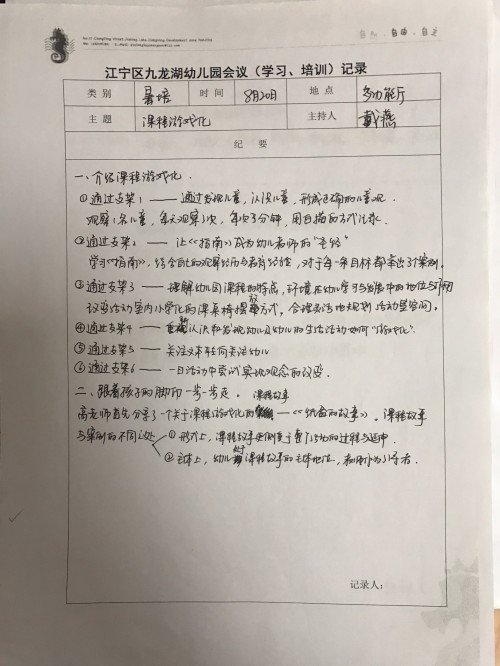 自然、自由、自主
江宁区九龙湖幼儿园会议(学习、培训)记录
类别 暑培 时间 8月20日 地点 多功能厅
主题 课程游戏化 主持人 戴燕
纪要
一、介绍课程游戏化.
①通过支架1 —— 通过发现儿童,认识儿童,形成正确的儿童观.
观察1名儿童,每天观察1次,每次3分钟,用白描的方式记录.
②通过支架2 —— 让《指南》成为幼儿老师的"圣经"
学习《指南》,结合自己的观察经历与教育经验,对于每一条目标都举出3个案例.
③通过支架3 —— 理解幼儿园课程的特点,环境在幼儿学习与发展中的地位与作用
改变活动室内小学化的课桌椅摆放方式,合理灵活地规划活动室空间.
④通过支架4 —— 重新认识和发现幼儿及幼儿的生活活动如何"游戏化".
⑤通过支架5 —— 关注文本转向关注幼儿
⑥通过支架6 —— 一日活动中尝试实现观念的改变.
二、跟着孩子的脚印一步一步走.
高老师首先分享了一个关于课程游戏化的课程故事——《的故事》。课程故事
与案例的不同之处
①形式上,课程故事更侧重于
②主体上,幼儿处于课程故事的主体地位,教师作为引导者.
记录人: